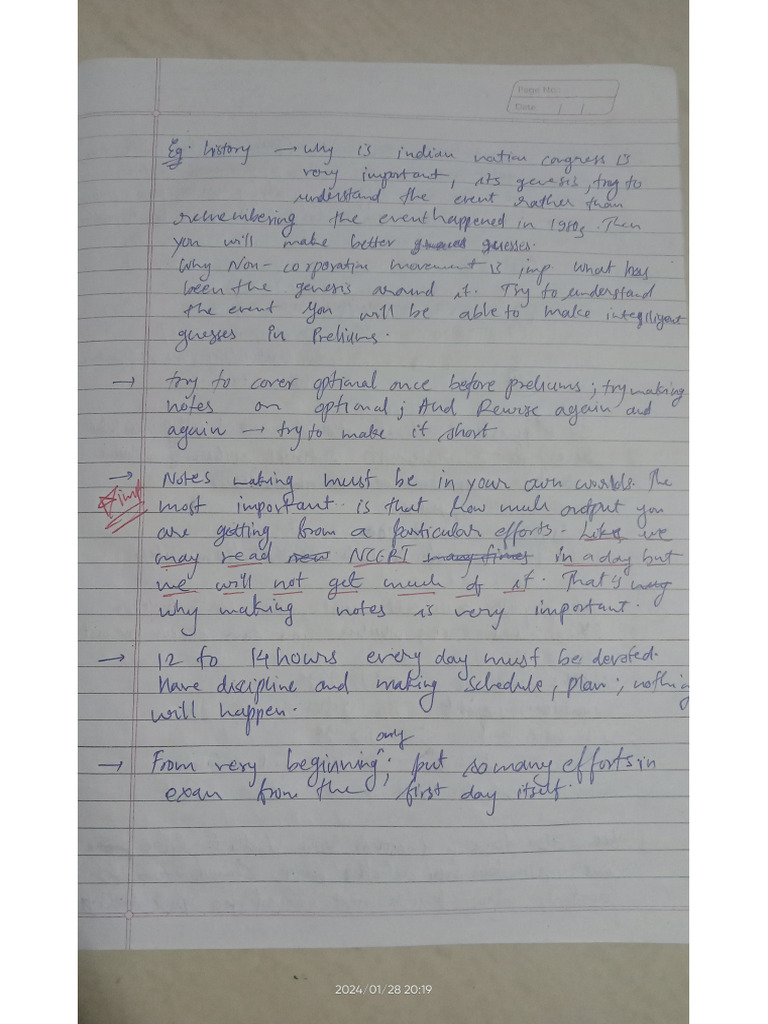 Page No.:
Date / /
Eg. history → why is indian nation congress is
very important, its genesis, try to
understand the event rather than
remembering the event happened in 1980s. Then
you will make better guesses.
Why Non-corporative movement is imp. what has
been the genesis around it. Try to understand
the event you will be able to make integlligent
guesses in Preliums.
→ try to cover optional once before preliums; try making
notes on optional; And Rewise again and
again → try to make it short
→ Notes making must be in your own worlds. The
imp
most important is that how much output you
are getting from a particular efforts - Like we
may read new NCERT many times in a day but
we will not get much of it. That's
why making notes is very important.
→ 12 to 14 hours every day must be devoted.
Have discipline and making schedule, plan; nothing
will happen.
only
→ From very beginning ^; put so many efforts in
exam from the first day itself.
2024/01/28 20:19